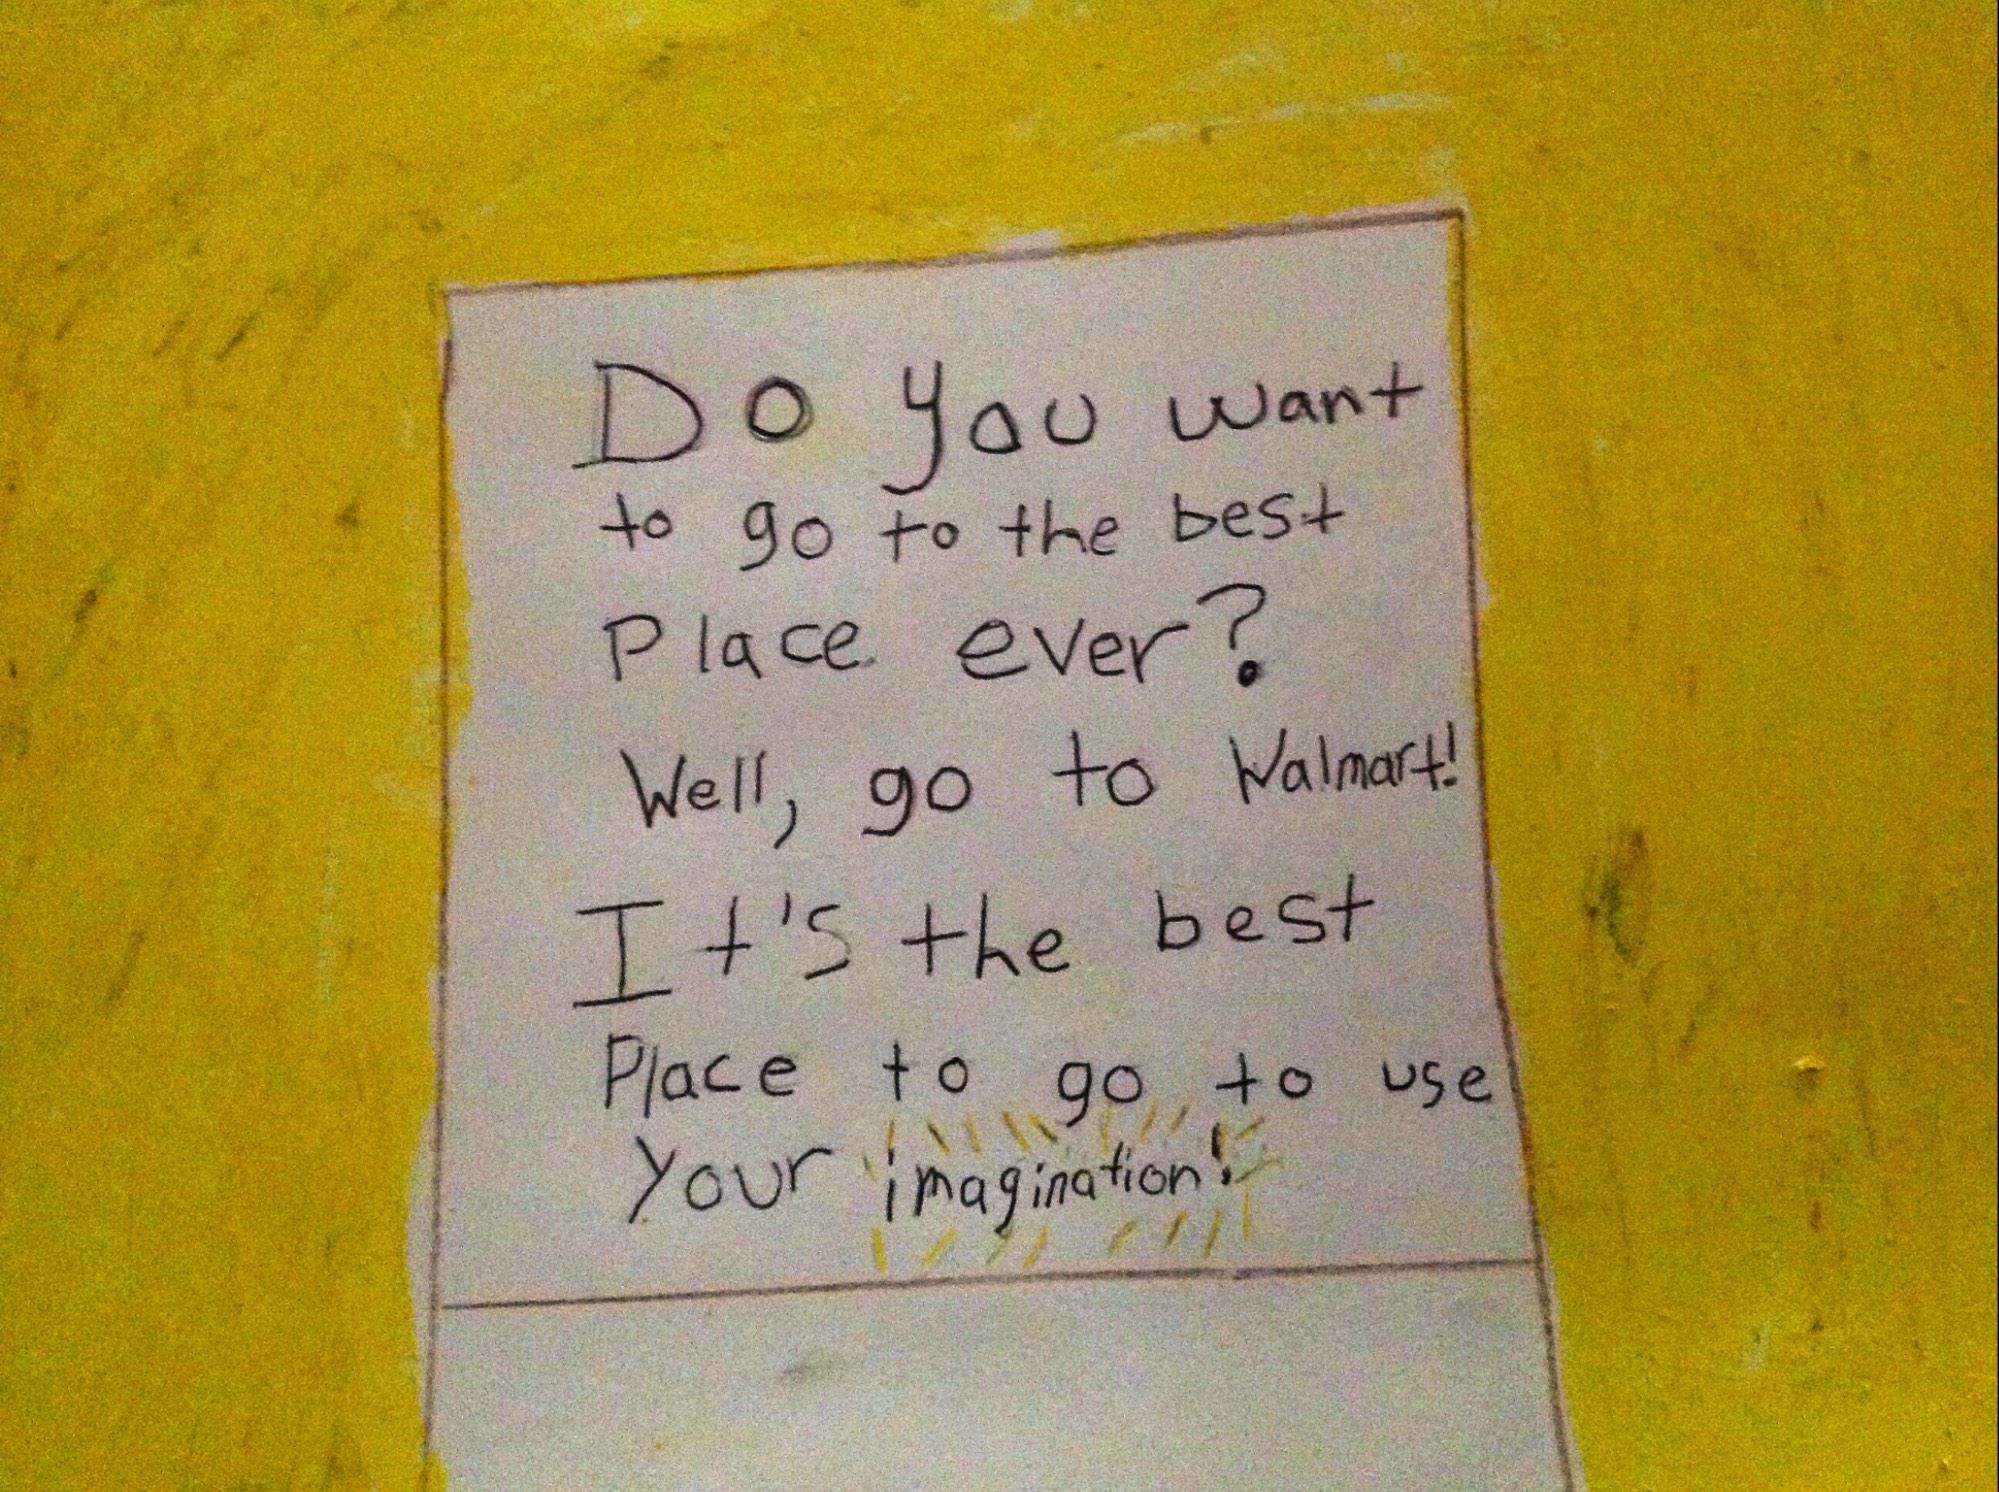 Do you want
to go to the best
Place ever?
Well, go to Walmart!
It's the best
Place to go to use
Your imagination!